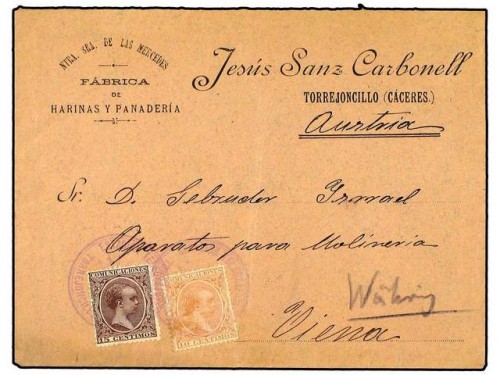 NTRA. SRA. DE LAS MERCEDES
FÁBRICA
DE
HARINAS Y PANADERÍA
Jesús Sanz Carbonell
TORREJONCILLO (CÁCERES.)
Austria
Sr. D. Gebruder Ysrael
Aparatos para Molineria
Währing
Viena
COMUNICACIONES
15 CENTIMOS
COMUNICACIONES
10 CENTIMOS